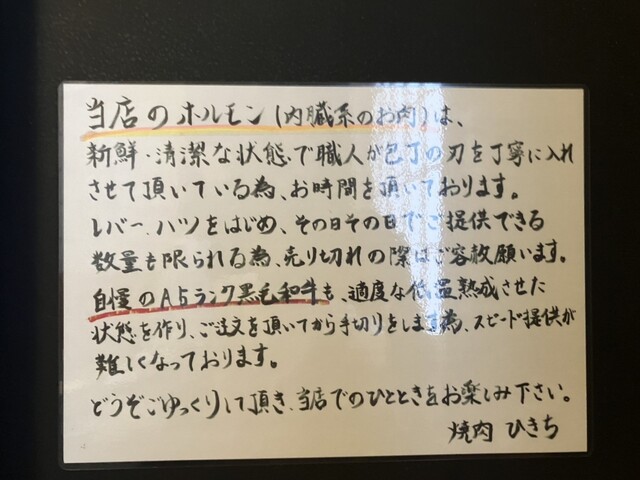 当店のホルモン(内臓系のお肉)は、
新鮮・清潔な状態で職人が包丁の刃を丁寧に入れ
させて頂いている為、お時間を頂いております。
レバー、ハツをはじめ、その日その日でご提供できる
数量も限られる為、売り切れの際はご容赦願います。
自慢のA5ランク黒毛和牛も、適度な低温熟成させた
状態を作り、ご注文を頂いてから手切りをします為、スピード提供が
難しくなっております。
どうぞごゆっくりして頂き、当店でのひとときをお楽しみ下さい。
焼肉 ひきち